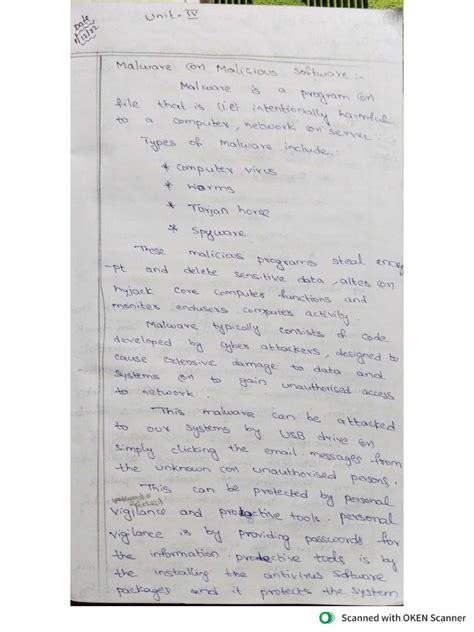 Date
1/12/22
Unit - IV
Malware (or) Malicious software :-
Malware is a program (or)
file that is (i.e) intentionally harmful
to a computer, network (or) server.
Types of Malware include:
* Computer virus
* Worms
* Torjan horse
* Spyware
These malicious programs steal encry
-pt and delete sensitive data, alter (or)
hyjack core computer functions and
moniter endusers computer activity.
Malware typically consists of code
developed by cyber attackers, designed to
cause extensive damage to data and
systems (or) to gain unauthorised access
to network.
This malware can be attacked
to our systems by USB drive (or)
simply clicking the email messages from
the unknown (or) unauthorised persons.
This can be protected by personal
vigilance and protective tools. personal
vigilance is by providing passwords for
the information protective tools is by
the installing the antivirus software
packages and it protects the system
Scanned with OKEN Scanner